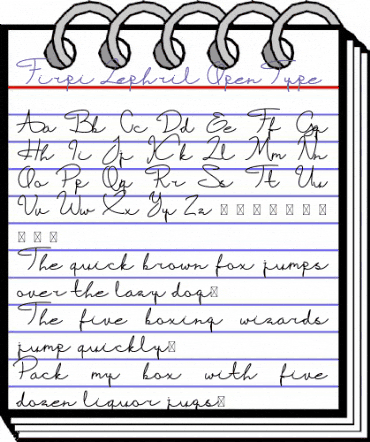 Firpi Lephril Open Type
Aa Bb Cc Dd Ee Ff Gg
Hh Ii Jj Kk Ll Mm Nn
Oo Pp Qq Rr Ss Tt Uu
Vv Ww Xx Yy Zz
The quick brown fox jumps
over the lazy dog
The five boxing wizards
jump quickly
Pack my box with five
dozen liquor jugs